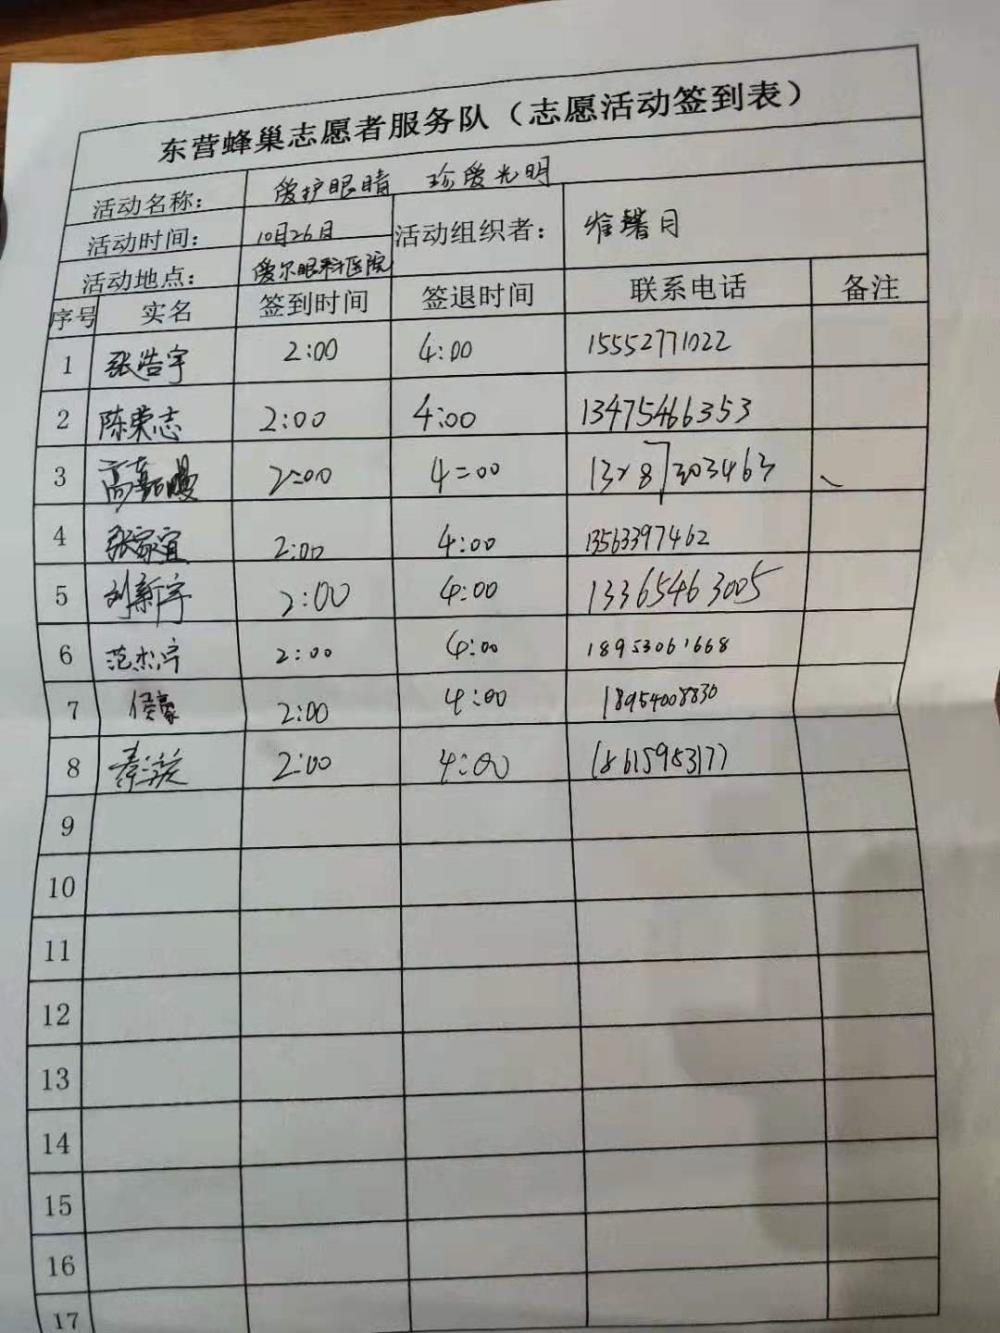 东营蜂巢志愿者服务队（志愿活动签到表）
活动名称： 爱护眼睛 珍爱光明
活动时间： 10月26日 活动组织者： 馨月
活动地点： 爱尔眼科医院
序号 实名 签到时间 签退时间 联系电话 备注
1 张浩宇 2:00 4:00 15552771022
2 陈荣志 2:00 4:00 13475466353
3 2:00 4:00
4 张家宜 2:00 4:00 13563397462
5 刘新宇 2:00 4:00 13365463005
6 范杰宁 2:00 4:00 18953061668
7 侯豪 2:00 4:00 18954008830
8 秦 2:00 4:00 18615953177
9
10
11
12
13
14
15
16
17